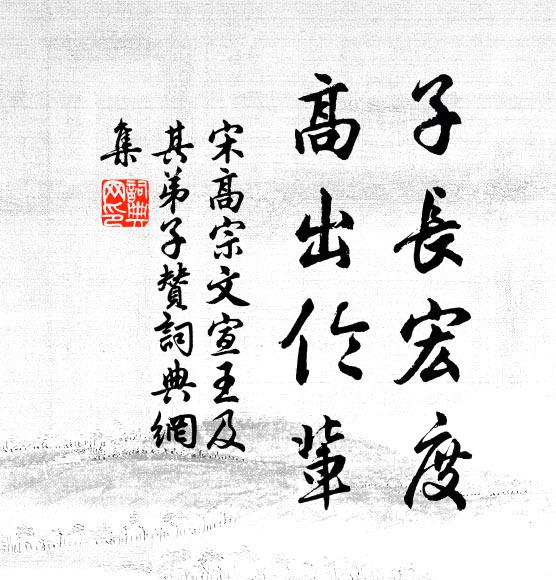 子長宏度
高出伦輩
宋高宗文宣王及
其弟子贊詞典網
集
詞典
网印